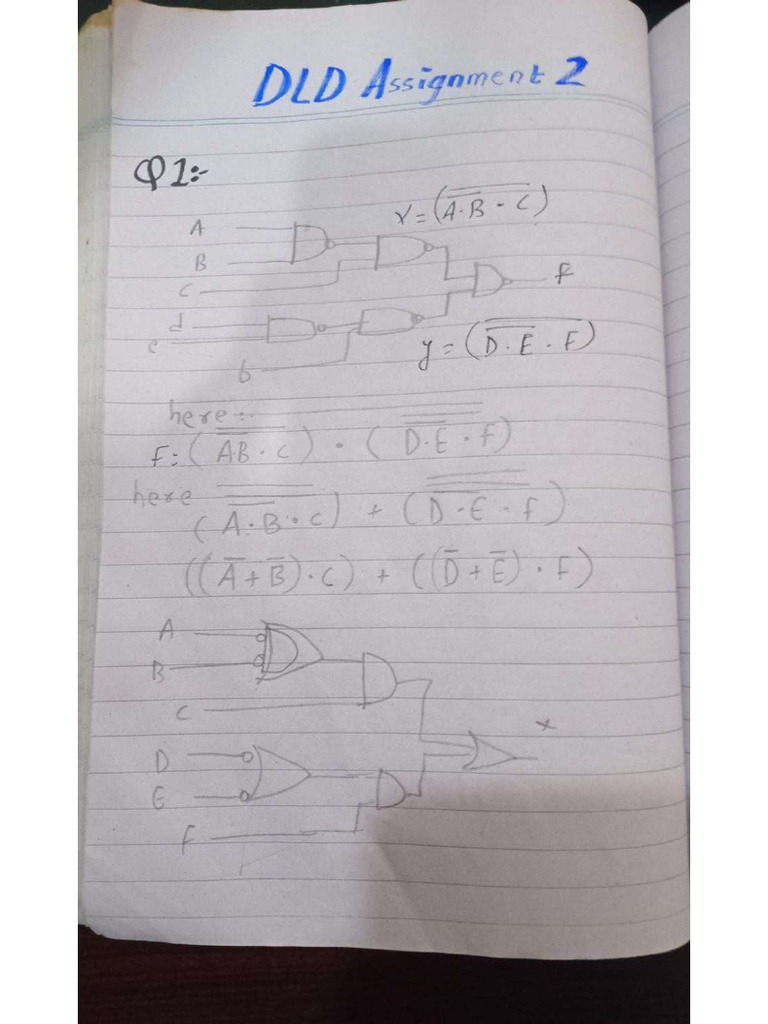 DLD Assignment 2
Q1:-
A
B
C
d
e
f
x = (A̅·̅B̅ · C)̅
y = (D̅·̅E̅ · F)̅
here :-
F: (A̅B̅ · C) · (D̅·̅E̅ · f)
here
(A̅·̅B̅ · C) + (D̅·̅E̅ · f)
((A̅ + B̅) · C) + ((D̅ + E̅) · F)
A
B
C
D
E
F
x